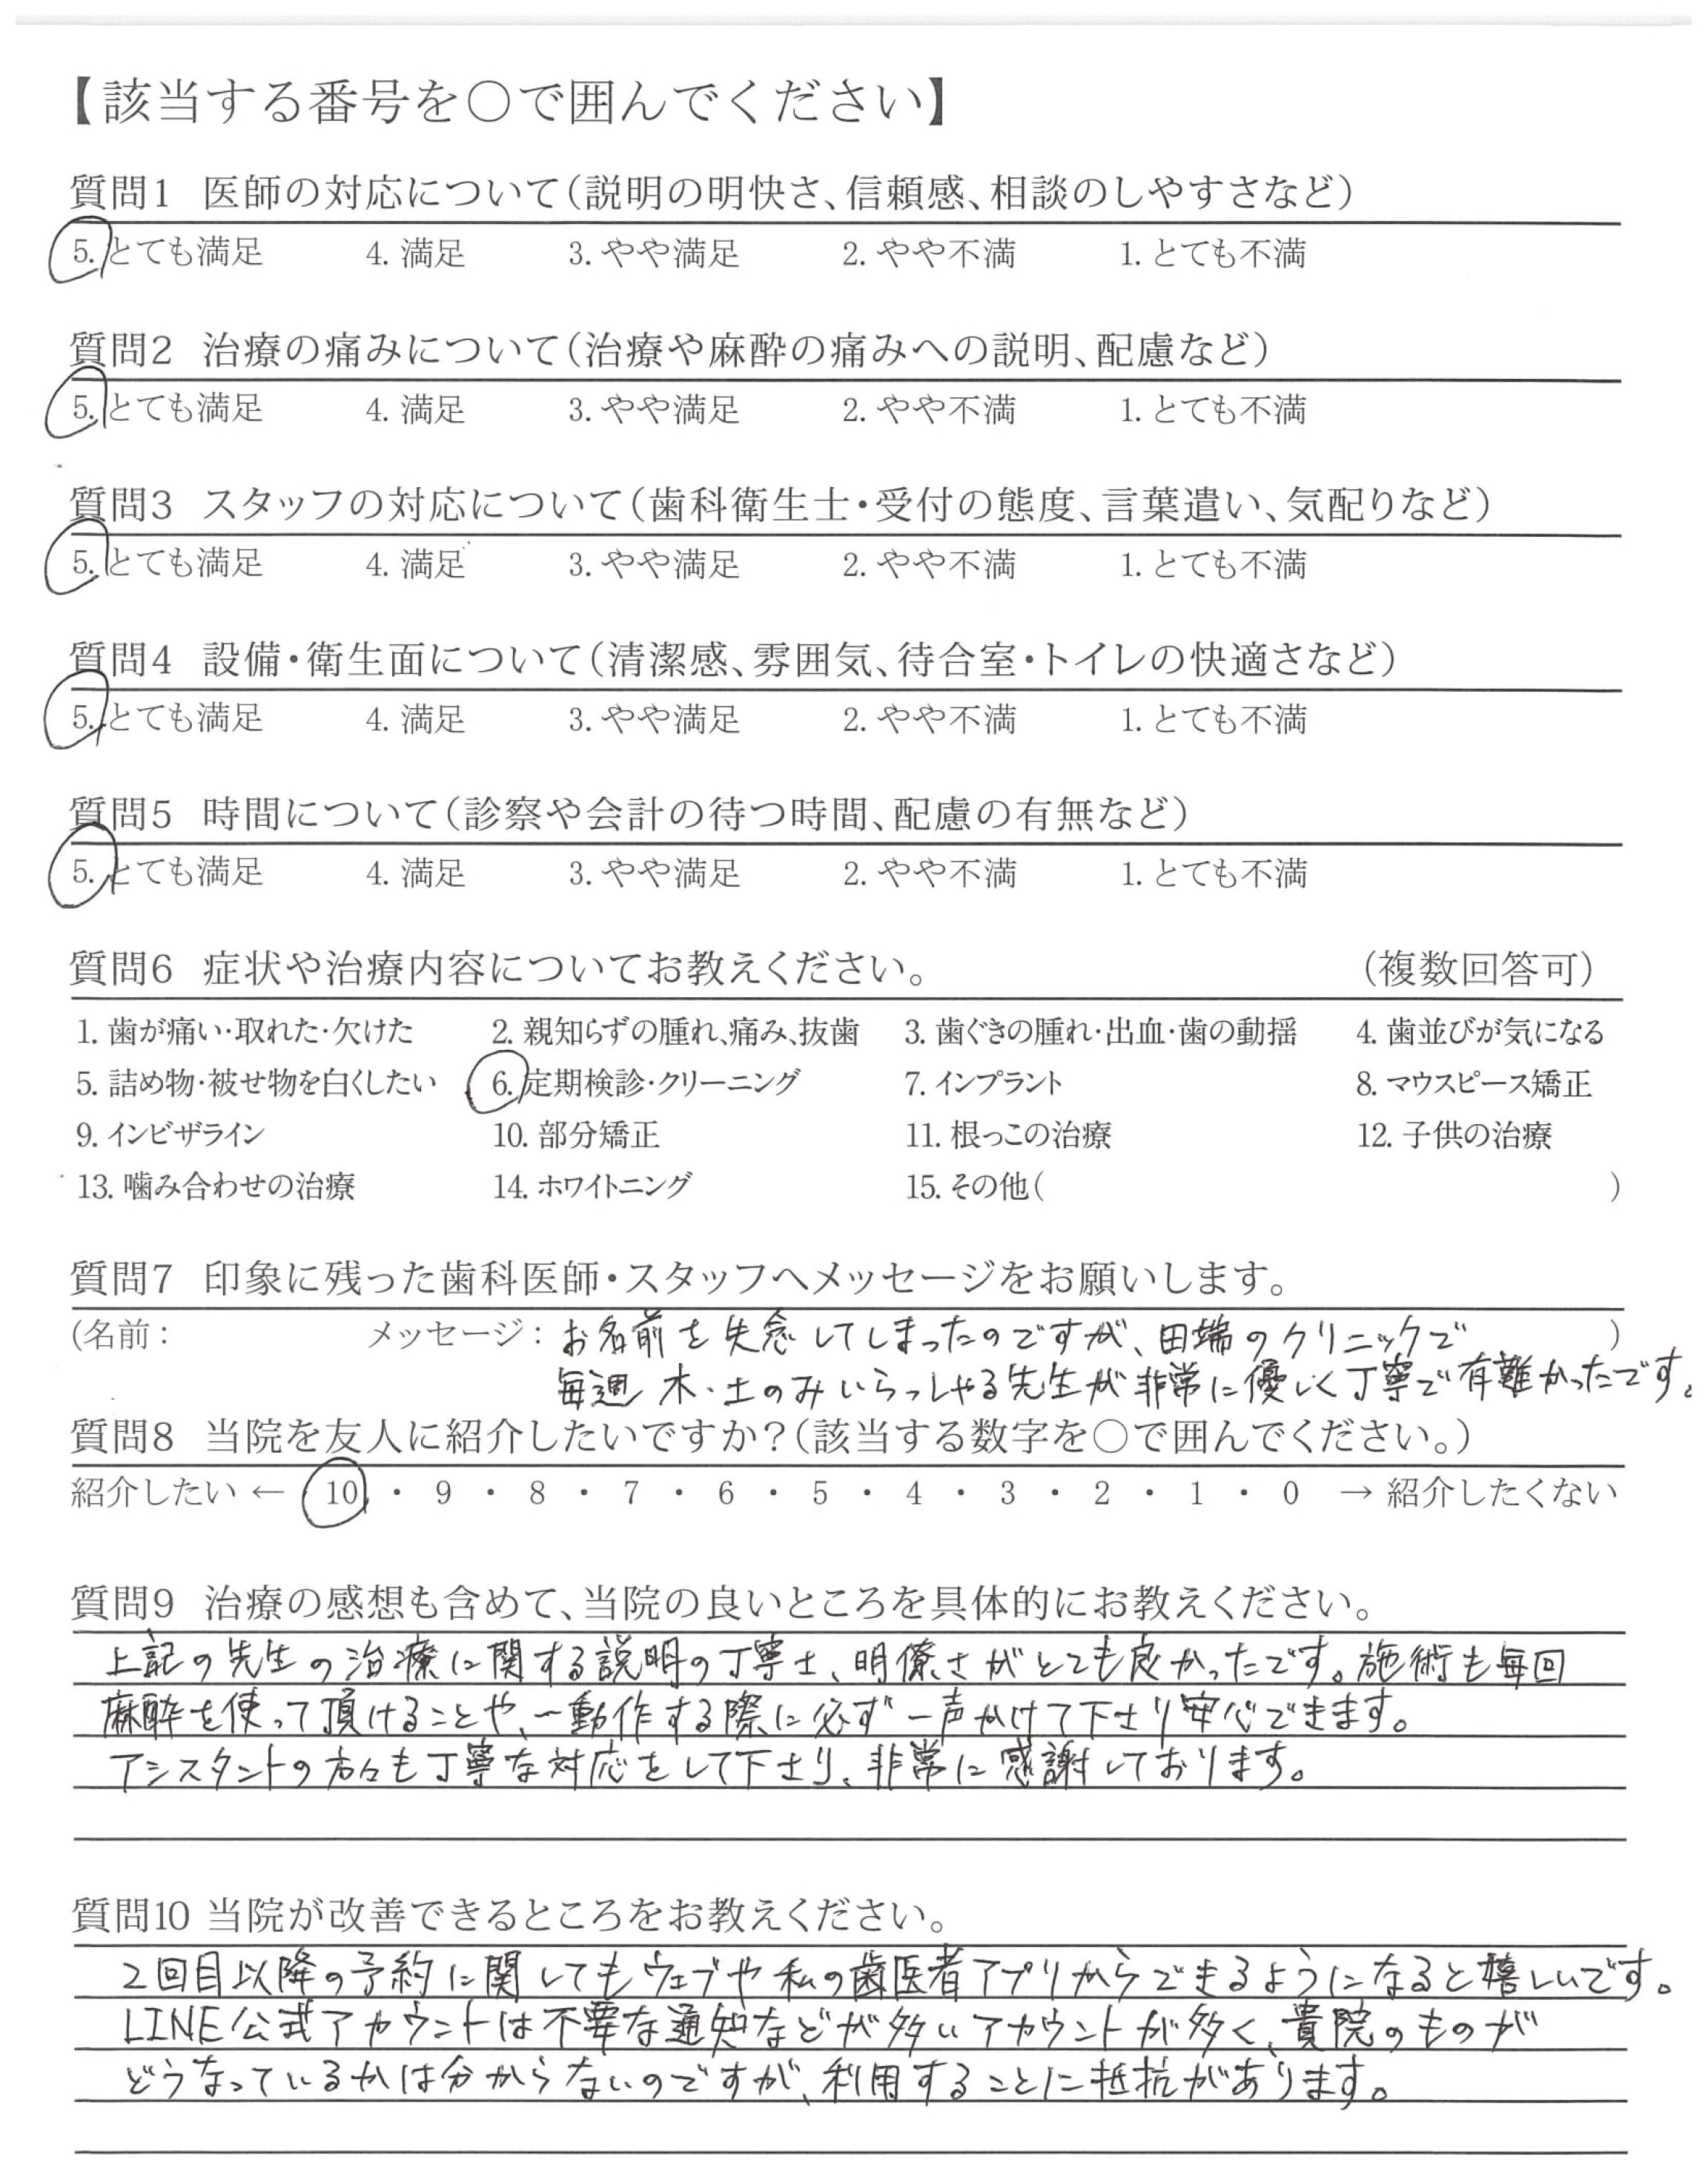 【該当する番号を○で囲んでください】
質問1 医師の対応について（説明の明快さ、信頼感、相談のしやすさなど）
5. とても満足 4. 満足 3. やや満足 2. やや不満 1. とても不満
質問2 治療の痛みについて（治療や麻酔の痛みへの説明、配慮など）
5. とても満足 4. 満足 3. やや満足 2. やや不満 1. とても不満
質問3 スタッフの対応について（歯科衛生士・受付の態度、言葉遣い、気配りなど）
5. とても満足 4. 満足 3. やや満足 2. やや不満 1. とても不満
質問4 設備・衛生面について（清潔感、雰囲気、待合室・トイレの快適さなど）
5. とても満足 4. 満足 3. やや満足 2. やや不満 1. とても不満
質問5 時間について（診察や会計の待つ時間、配慮の有無など）
5. とても満足 4. 満足 3. やや満足 2. やや不満 1. とても不満
質問6 症状や治療内容についてお教えください。 （複数回答可）
1. 歯が痛い・取れた・欠けた 2. 親知らずの腫れ、痛み、抜歯 3. 歯ぐきの腫れ・出血・歯の動揺 4. 歯並びが気になる
5. 詰め物・被せ物を白くしたい 6. 定期検診・クリーニング 7. インプラント 8. マウスピース矯正
9. インビザライン 10. 部分矯正 11. 根っこの治療 12. 子供の治療
13. 噛み合わせの治療 14. ホワイトニング 15. その他（ ）
質問7 印象に残った歯科医師・スタッフへメッセージをお願いします。
（名前： メッセージ：お名前を失念してしまったのですが、田端のクリニックで ）
毎週 木・土のみいらっしゃる先生が非常に優しく丁寧で有難かったです。
質問8 当院を友人に紹介したいですか？（該当する数字を○で囲んでください。）
紹介したい ← 10 ・ 9 ・ 8 ・ 7 ・ 6 ・ 5 ・ 4 ・ 3 ・ 2 ・ 1 ・ 0 → 紹介したくない
質問9 治療の感想も含めて、当院の良いところを具体的にお教えください。
上記の先生の治療に関する説明の丁寧さ、明僚さがとても良かったです。施術も毎回
麻酔を使って頂けることや、一動作する際に必ず一声かけて下さり安心できます。
アシスタントの方々も丁寧な対応をして下さり、非常に感謝しております。
質問10 当院が改善できるところをお教えください。
2回目以降の予約に関してもウェブや私の歯医者アプリからできるようになると嬉しいです。
LINE公式アカウントは不要な通知などが多いアカウントが多く、貴院のものが
どうなっているかは分からないのですが、利用することに抵抗があります。